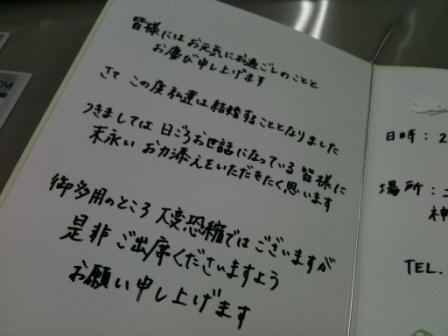 皆様にはお元気にお過ごしのことと
お慶び申し上げます
さて この度私達は結婚することとなりました
つきましては 日ごろお世話になっている 皆様に
末永い お力添えをいただきたく思います
御多用のところ 大変恐縮ではございますが
是非 ご出席くださいますよう
お願い申し上げます
日時：2
場所：
神
TEL.